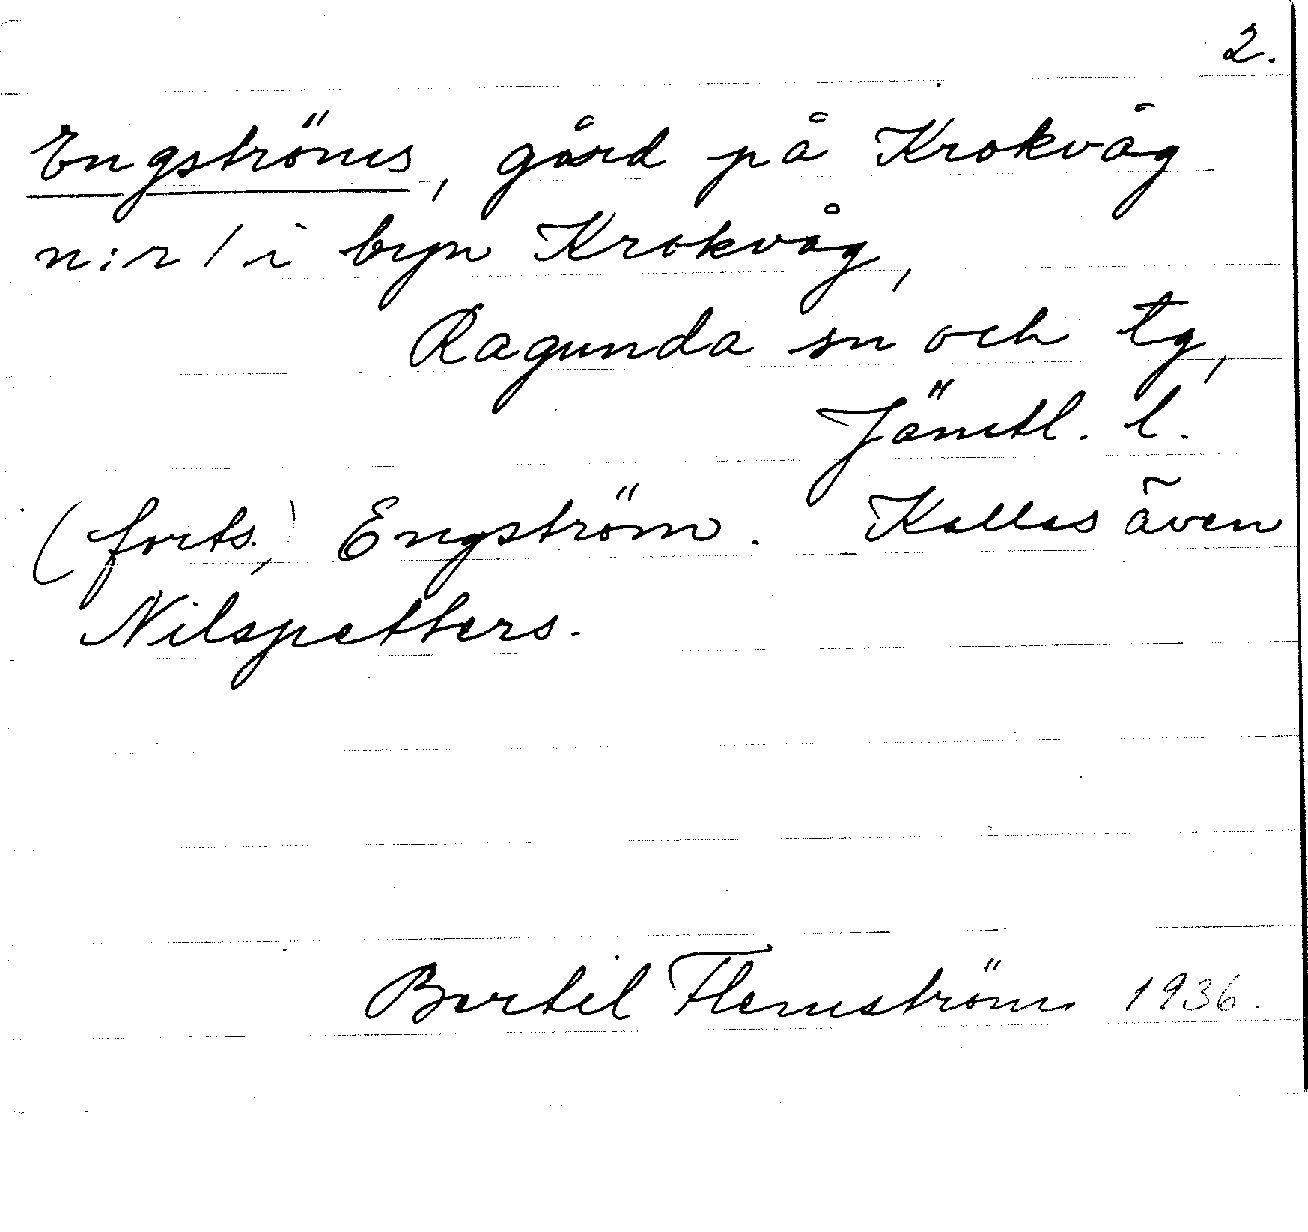 2.
Engströms, gård på Krokvåg
n:r 1 i byn Krokvåg,
Ragunda sn och tg,
Jämtl. l.
(forts.) Engström. Kallas även
Nilspetters.
Bertil Flemström 1936.